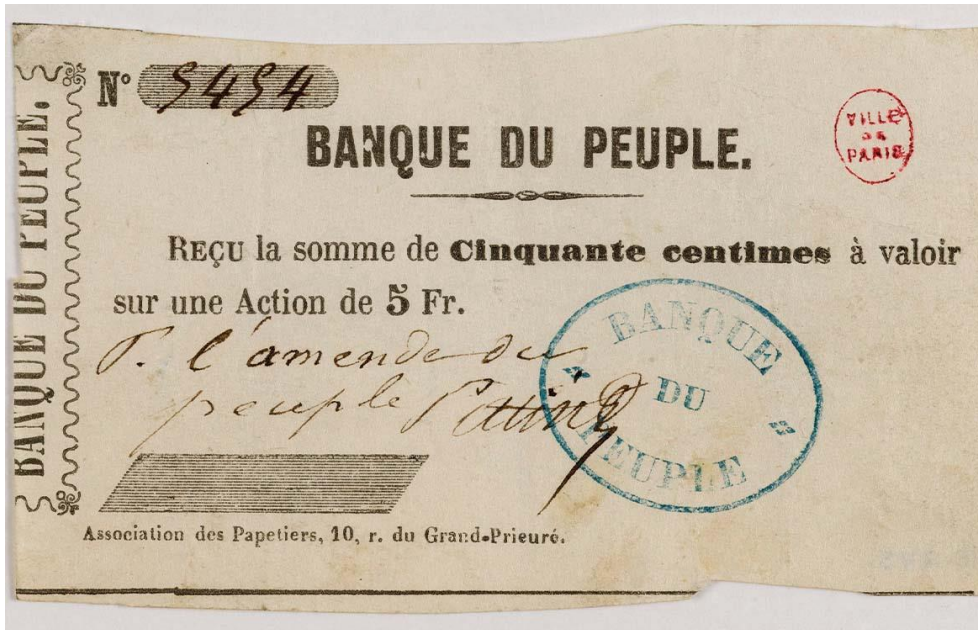 BANQUE DU PEUPLE.
N° 5454
VILLE
DE
PARIS
BANQUE DU PEUPLE.
REÇU la somme de Cinquante centimes à valoir
sur une Action de 5 Fr.
P. l'amende du
peuple
BANQUE
DU
PEUPLE
Association des Papetiers, 10, r. du Grand-Prieuré.